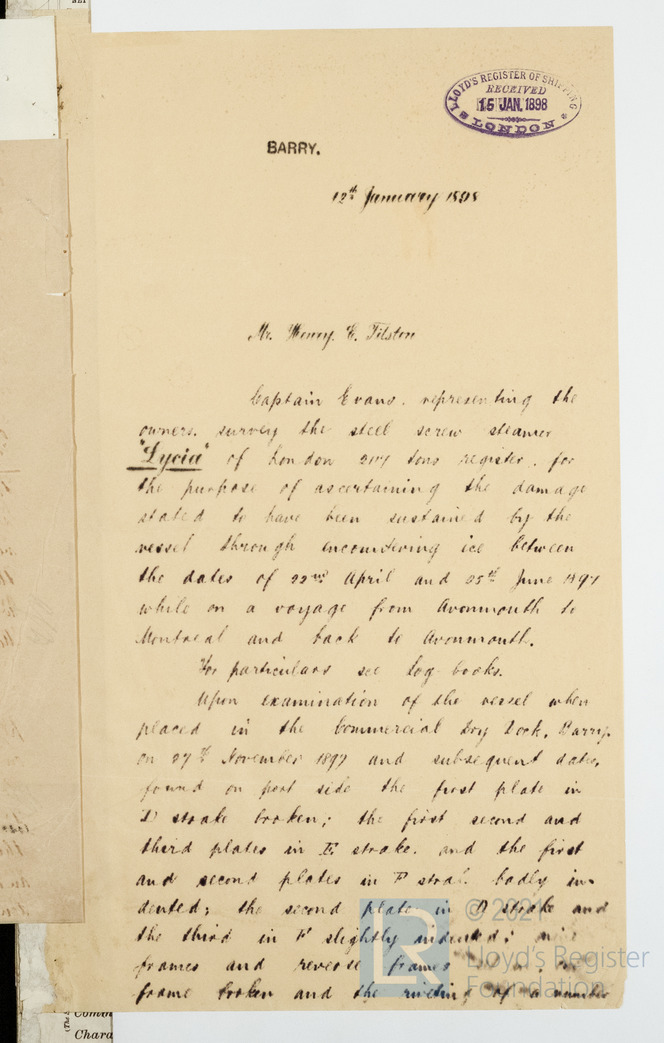 LLOYD'S REGISTER OF SHIPPING
RECEIVED
15 JAN. 1898
LONDON
BARRY.
12th January 1898
Mr. Henry. E. Tilston
Captain Evans. representing the
owners. survey the steel screw steamer
"Lycia" of London tons register. for
the purpose of ascertaining the damage
stated to have been sustained by the
vessel through encountering ice between
the dates of 22nd April and 25th June 1897
while on a voyage from Avonmouth to
Montreal and back to Avonmouth.
For particulars see Log-books.
Upon examination of the vessel when
placed in the Commercial Dry Dock, Barry.
on 27th November 1897 and subsequent dates,
found on port side the first plate in
D strake broken; the first second and
third plates in E strake. and the first
and second plates in F badly in-
dented; the second plate in D strake and
the third in F slightly indented;
frames and reverse frames
frame broken and the riveting of a number
© 2021
Lloyd's Register
Foundation
Chara